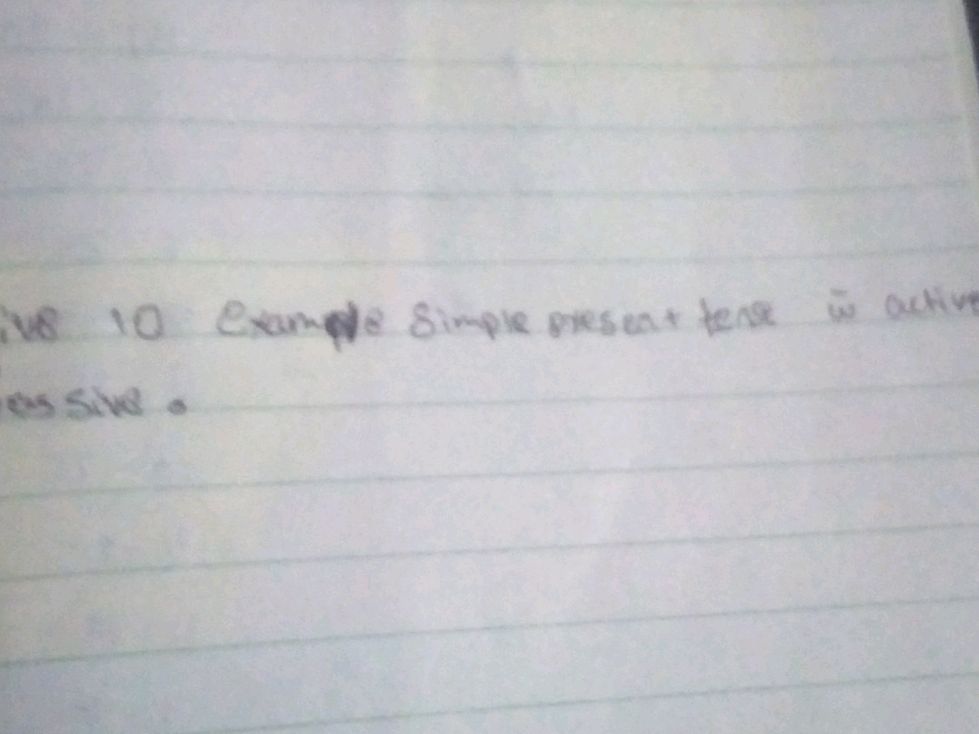 ive 10 example Simple present tense in active
essive.